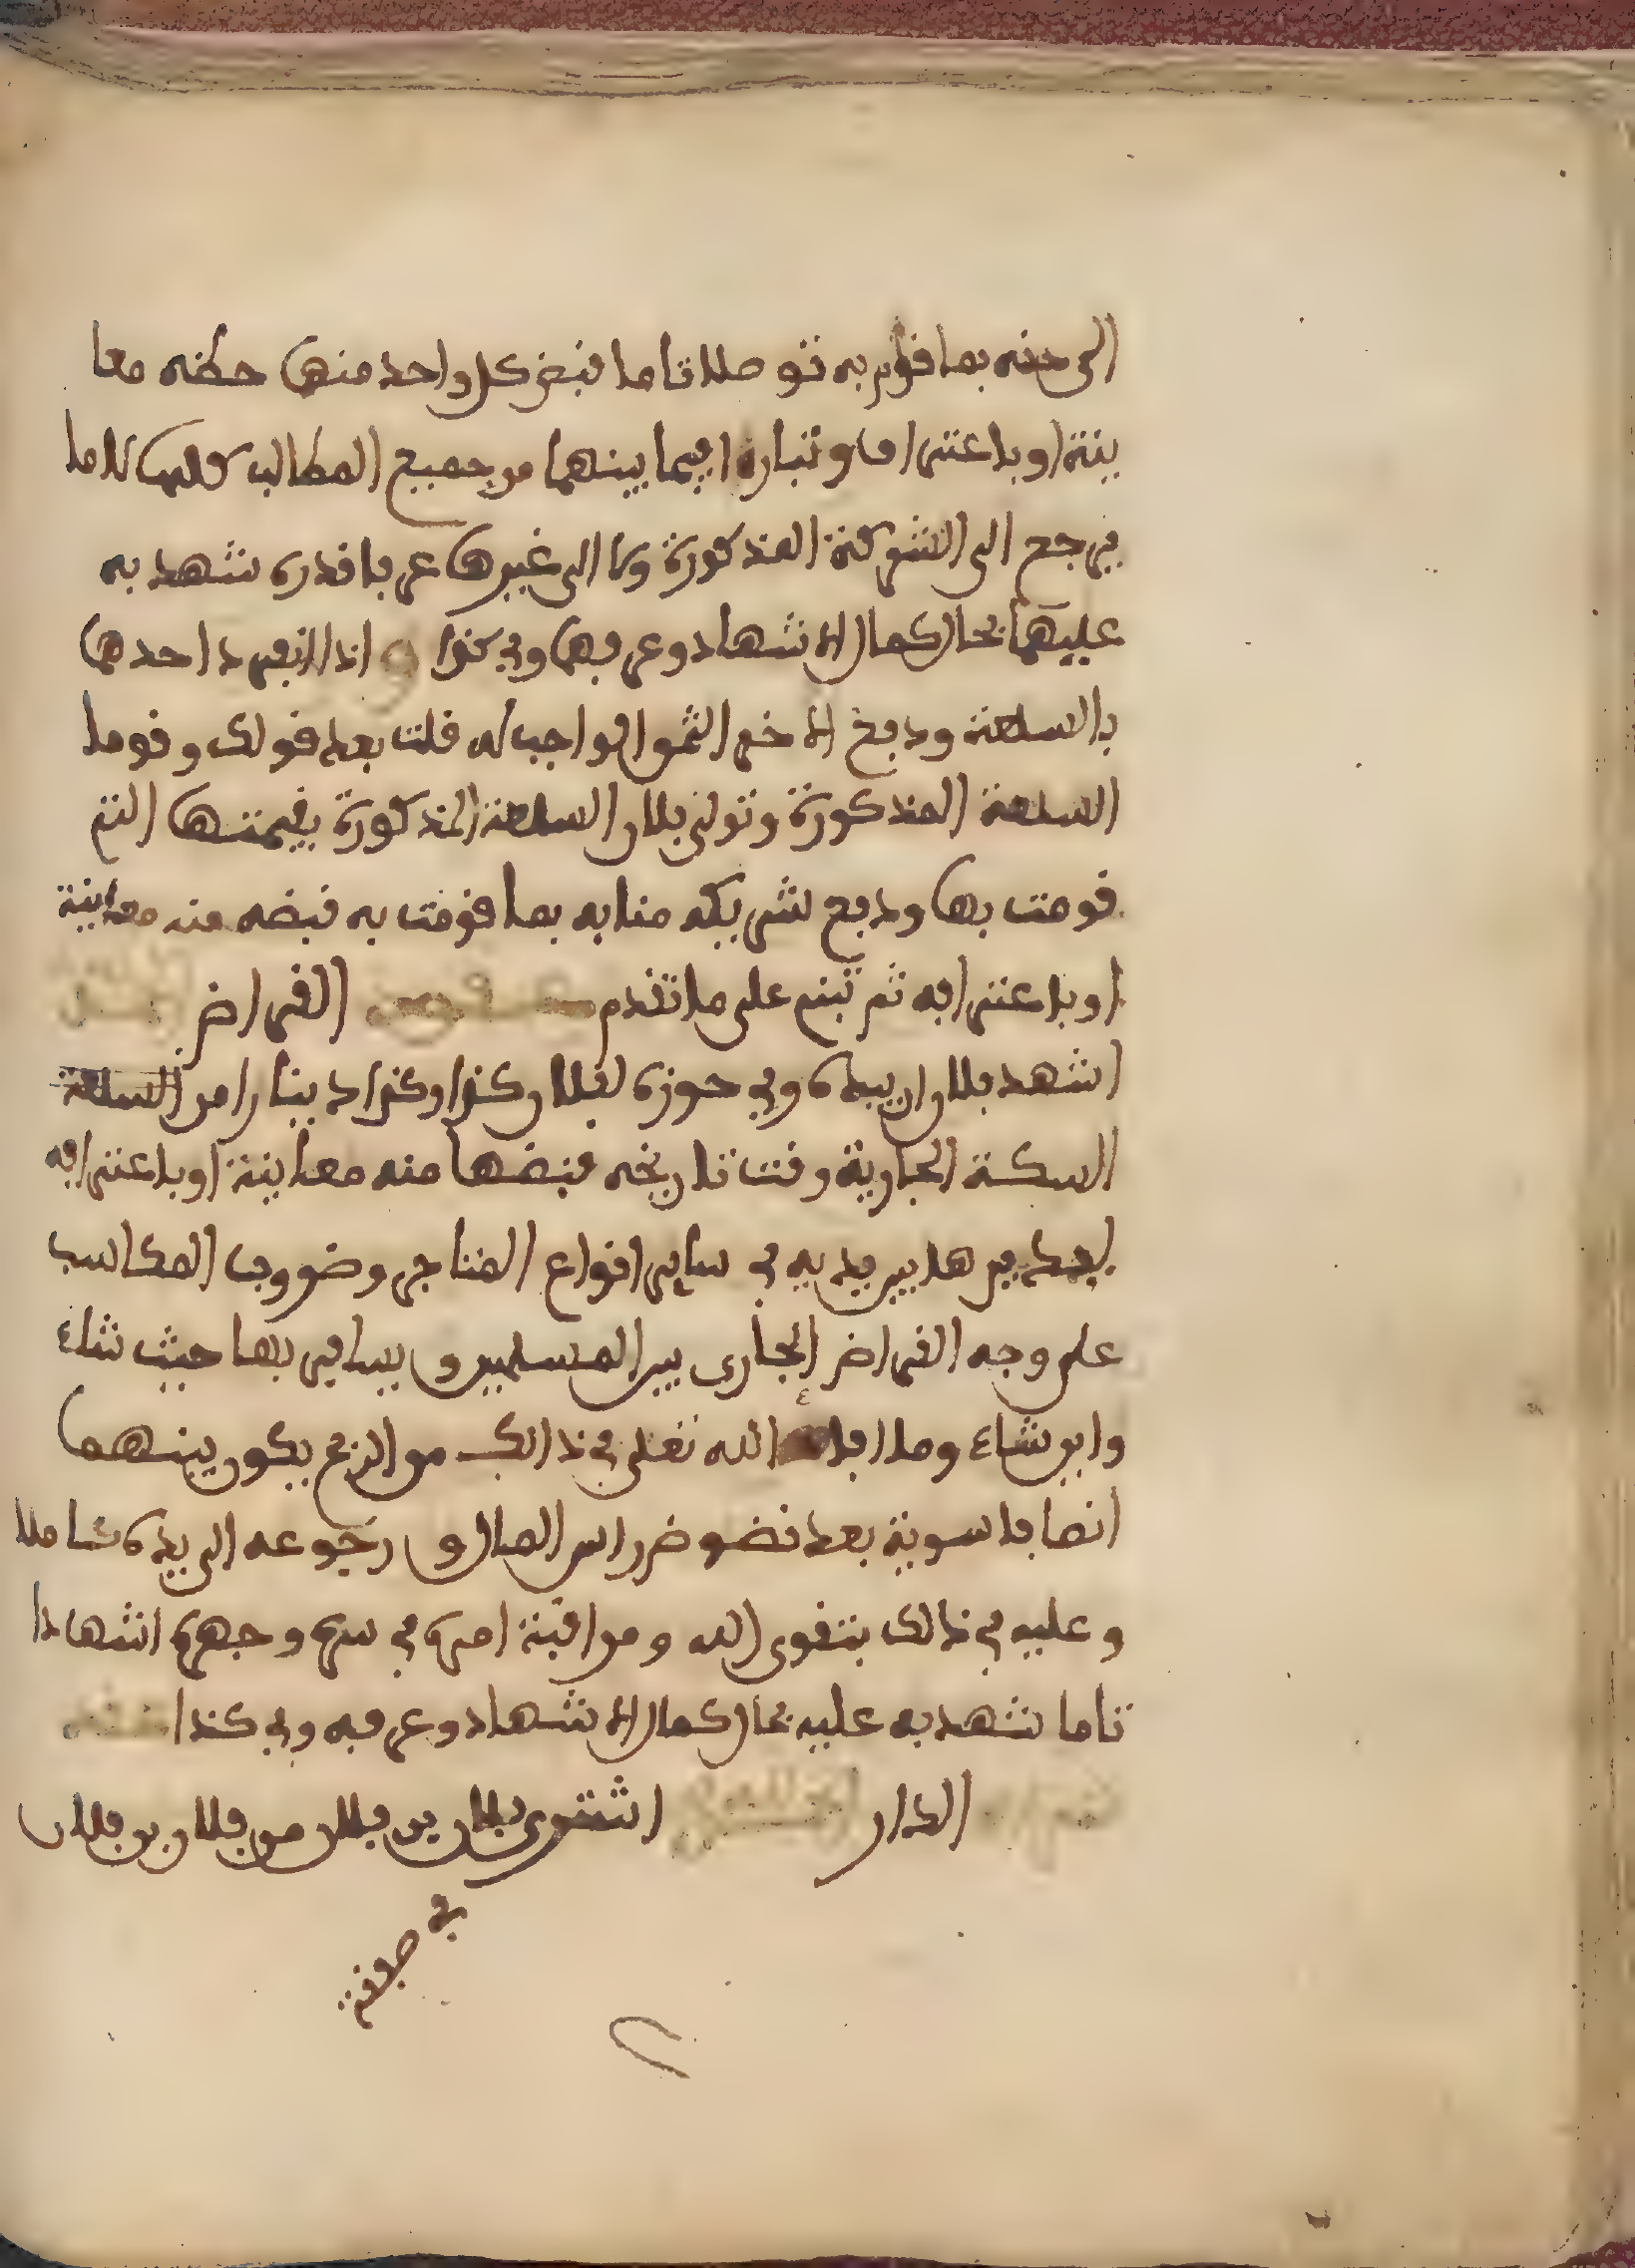 الى حقه بما قوم به توصلا تاما قبض كل واحد منهما حظه معا
ينة او باعترافهما وتبارءا فيما بينهما من جميع المطالب كلها كلاما
يرجع الى الشركة المذكورة ولا الى غيرها عرفا قدره شهد به
عليهما بحال كمال الاشهاد وعرفهما وفي كذا اذا انفرد احدهما
بالسلعة ودفع الاخر الثمن الواجب له قلت بعد قولك وقوما
السلعة المذكورة وتولى فلان السلعة المذكورة بقيمتها التي
قومت بها ودفع لشريكه منابه بما قومت به قبضه منه معاينة
او باعترافه ثم تبني على ما تقدم القراض
اشهد فلان ان بيده وفي حوزه لفلان كذا وكذا دينارا من السلعة
السكة الجارية وقت تاريخه قبضها منه معاينة او باعترافه
ليدير هدير يديه في ساير انواع المتاجر وضروب المكاسب
على وجه القراض الجاري بين المسلمين ويسافر بها حيث شاء
واين شاء وما افاء الله تعلى في ذالك من الربح يكون بينهما
انصافا سوية بعد نضوض راس المال ورجوعه الى يده كاملا
وعليه في ذالك بتقوى الله ومراقبة امره في سره وجهره اشهادا
تاما شهد به عليه بحال كمال الاشهاد وعرفه وفي كذا
الدار اشترى فلان بن فلان من فلان بن فلان
في صفقة